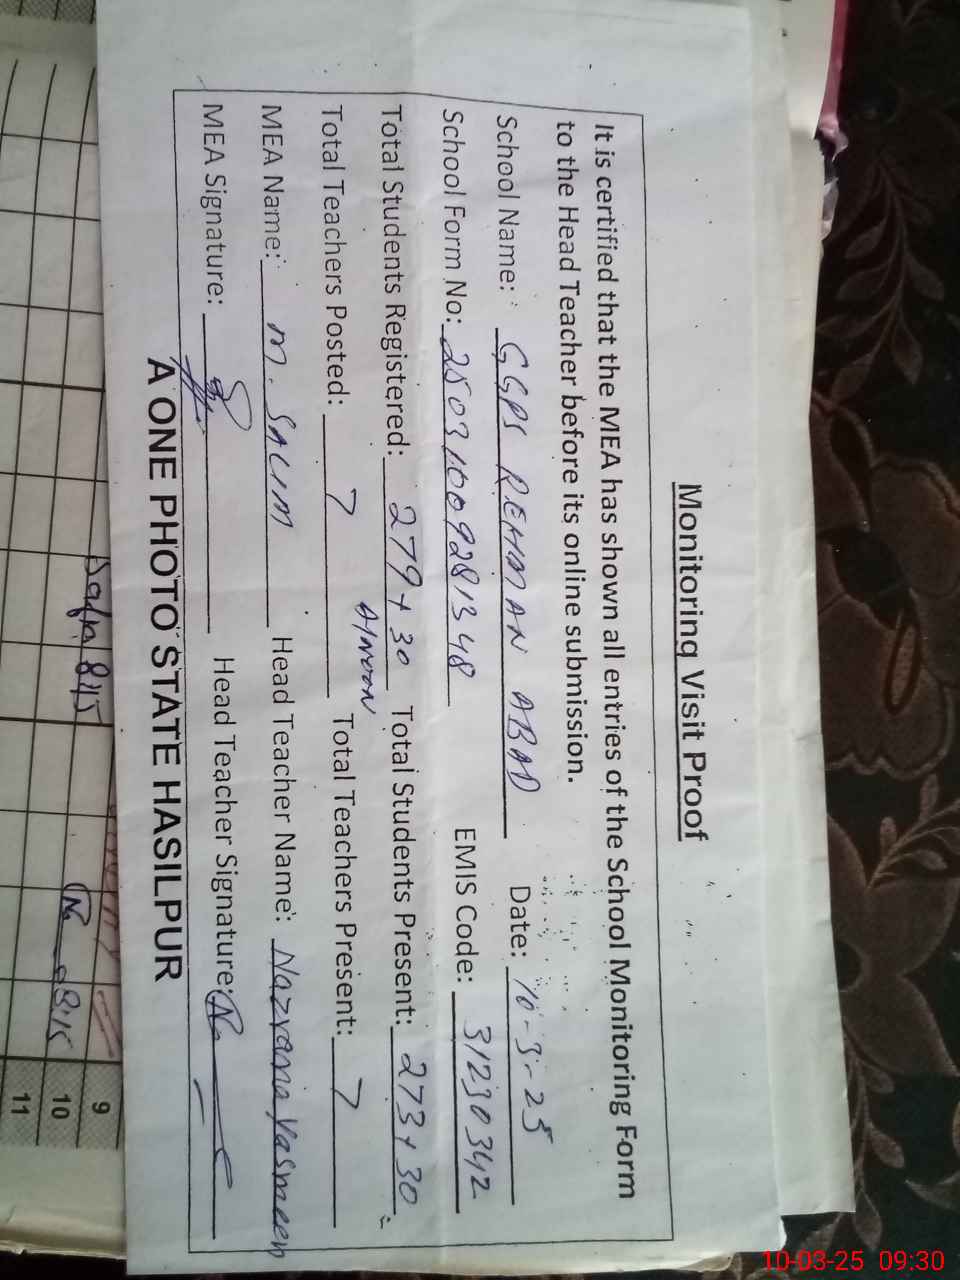 Monitoring Visit Proof
It is certified that the MEA has shown all entries of the School Monitoring Form
to the Head Teacher before its online submission.
School Name: GGPS REHMAN ABAD Date: 10-3-25
School Form No: 2503100928 1348 EMIS Code: 31230342
Total Students Registered: 279+30 Total Students Present: 273+30
Total Teachers Posted: 7 Total Teachers Present: 7
MEA Name: M. SALIM Head Teacher Name: Nazrana Yasmeen
MEA Signature: Head Teacher Signature:
A ONE PHOTO STATE HASILPUR
8:15
8:15
9
10
11
10-03-25 09:30